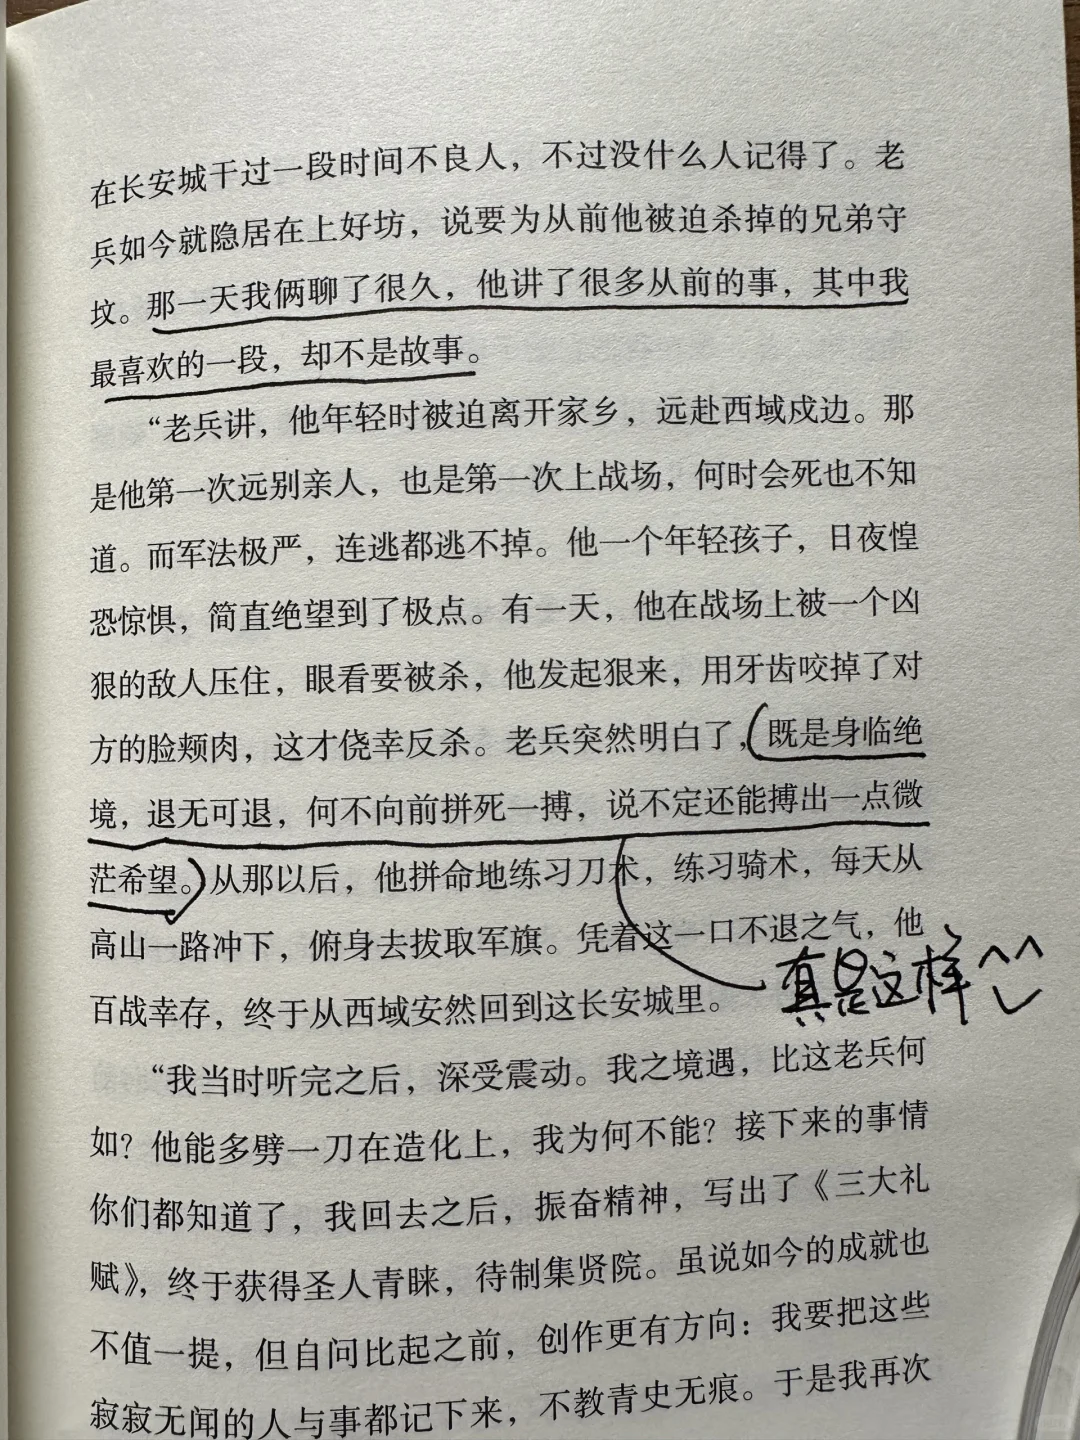 在长安城干过一段时间不良人，不过没什么人记得了。老
兵如今就隐居在上好坊，说要为从前他被迫杀掉的兄弟守
坟。那一天我俩聊了很久，他讲了很多从前的事，其中我
最喜欢的一段，却不是故事。
“老兵讲，他年轻时被迫离开家乡，远赴西域戍边。那
是他第一次远别亲人，也是第一次上战场，何时会死也不知
道。而军法极严，连逃都逃不掉。他一个年轻孩子，日夜惶
恐惊惧，简直绝望到了极点。有一天，他在战场上被一个凶
狠的敌人压住，眼看要被杀，他发起狠来，用牙齿咬掉了对
方的脸颊肉，这才侥幸反杀。老兵突然明白了，既是身临绝
境，退无可退，何不向前拼死一搏，说不定还能搏出一点微
茫希望。从那以后，他拼命地练习刀术，练习骑术，每天从
高山一路冲下，俯身去拔取军旗。凭着这一口不退之气，他
百战幸存，终于从西域安然回到这长安城里。
真是这样
“我当时听完之后，深受震动。我之境遇，比这老兵何
如？他能多劈一刀在造化上，我为何不能？接下来的事情
你们都知道了，我回去之后，振奋精神，写出了《三大礼
赋》，终于获得圣人青睐，待制集贤院。虽说如今的成就也
不值一提，但自问比起之前，创作更有方向：我要把这些
寂寂无闻的人与事都记下来，不教青史无痕。于是我再次